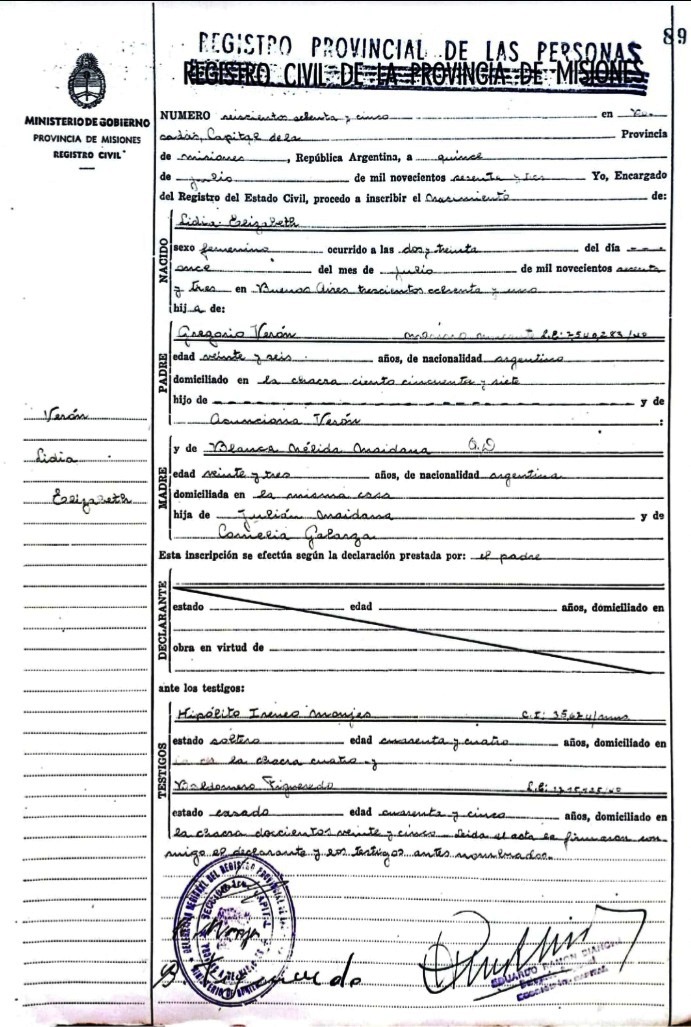 89
REGISTRO PROVINCIAL DE LAS PERSONAS
REGISTRO CIVIL DE LA PROVINCIA DE MISIONES
MINISTERIO DE GOBIERNO
PROVINCIA DE MISIONES
REGISTRO CIVIL
NUMERO seiscientos setenta y cinco en Po-
sadas, Capital de la Provincia
de misiones, República Argentina, a quince
de julio de mil novecientos sesenta y tres Yo, Encargado
del Registro del Estado Civil, procedo a inscribir el nacimiento de:
NACIDO
Lidia Elizabeth
sexo femenino ocurrido a las dos y treinta del día
once del mes de julio de mil novecientos sesenta
y tres en Buenos Aires trescientos ochenta y uno
hija de:
PADRE
Gregorio Verón
edad veinte y seis años, de nacionalidad argentino
domiciliado en la chacra ciento cincuenta y siete
hijo de y de
Asunciona Verón :
Verón
Lidia
Elizabeth
MADRE
y de Blanca Nélida Maidana
edad veinte y tres años, de nacionalidad argentina
domiciliada en la misma casa
hija de Julián Maidana y de
Cornelia Galarza
Esta inscripción se efectúa según la declaración prestada por: el padre
DECLARANTE
estado edad años, domiciliado en
obra en virtud de
ante los testigos:
TESTIGOS
Hipólito Ireneo Monjes C.I:
estado soltero edad cuarenta y cuatro años, domiciliado en
la chacra cuatro y
Baldomero Figueredo L.E:
estado casado edad cuarenta y cinco años, domiciliado en
la chacra doscientos veinte y cinco. Leida el acta la firmaron con-
migo el declarante y los testigos antes nombrados.